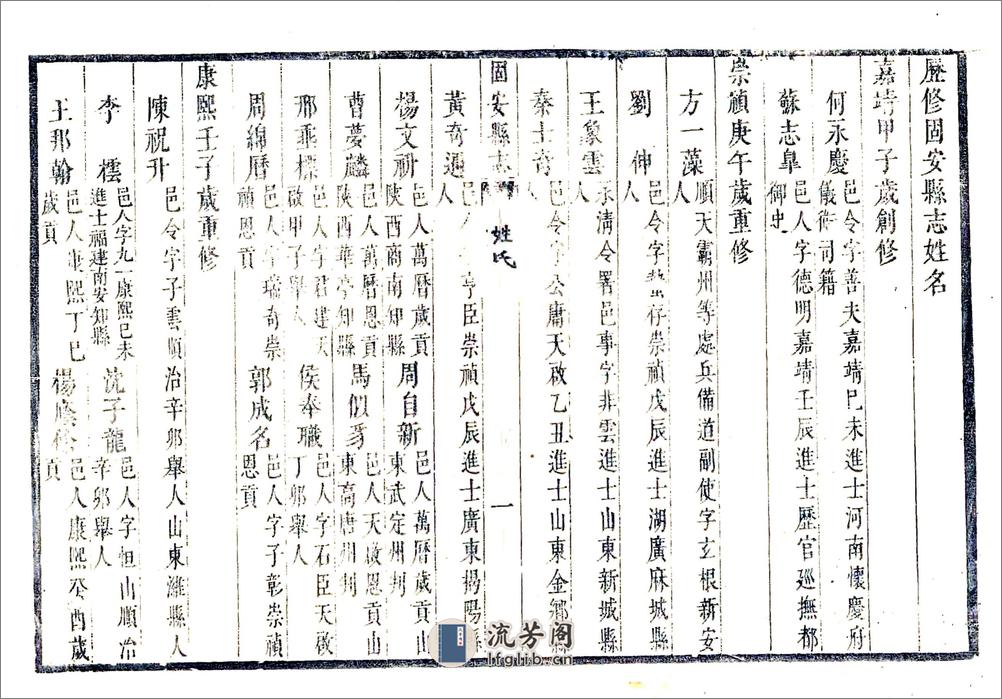 歷修固安縣志姓名
嘉靖甲子歲創修
何永慶 邑令字善夫嘉靖己未進士河南懷慶府儀衛司籍
蘇志臯 邑人字德明嘉靖壬辰進士歷官廵撫都御史
崇禎庚午歲重修
方一藻 順天霸州等處兵備道副使字玄根新安人
劉伸 邑令字存崇禎戊辰進士湖廣麻城縣人
王象雲 永淸令署邑事字非雲進士山東新城縣人
秦士奇 邑令字公庸天啟乙丑進士山東金鄉縣人
固安縣志 姓氏 一
黃奇遇 邑令字亨臣崇禎戊辰進士廣東揭陽縣人
楊文研 邑人萬曆歲貢陜西商南知縣
周自新 邑人萬曆歲貢山東武定州判
曹夢麟 邑人萬曆恩貢陜西華亭知縣
馬似豸 邑人天啟恩貢山東高唐州判
邢秉標 邑人字君建天啟甲子舉人
侯奉職 邑人字石臣天啟丁卯舉人
周綿曆 邑人字瑞奇崇禎恩貢
郭成名 邑人字子彰崇禎恩貢
康熙壬子歲重修
陳祝升 邑令字子雲順治辛卯舉人山東濰縣人
李檽 邑人字九一康熙己未進士福建南安知縣
沈子龍 邑人字恒山順治辛卯舉人
王邦翰 邑人康熙丁巳歲貢
楊 邑人康熙癸酉歲貢
流芳阁
lfglib.cn